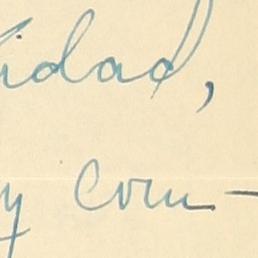 idad,
y com-